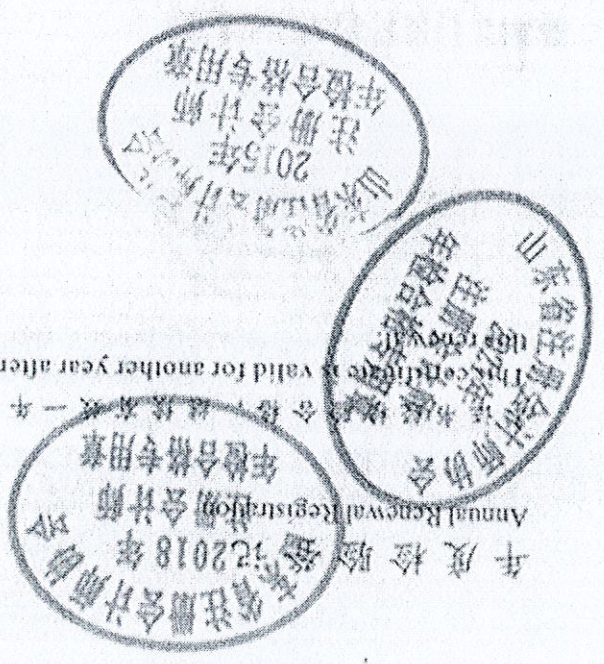 年度检验登记
Annual Renewal Registration
本证书经检验合格，继续有效一年。
This certificate is valid for another year after
this renewal.
山东省注册会计师协会
2018年
注册会计师
年检合格专用章
山东省注册会计师协会
注册会计师
年检合格专用章
山东省注册会计师协会
2015年
注册会计师
年检合格专用章